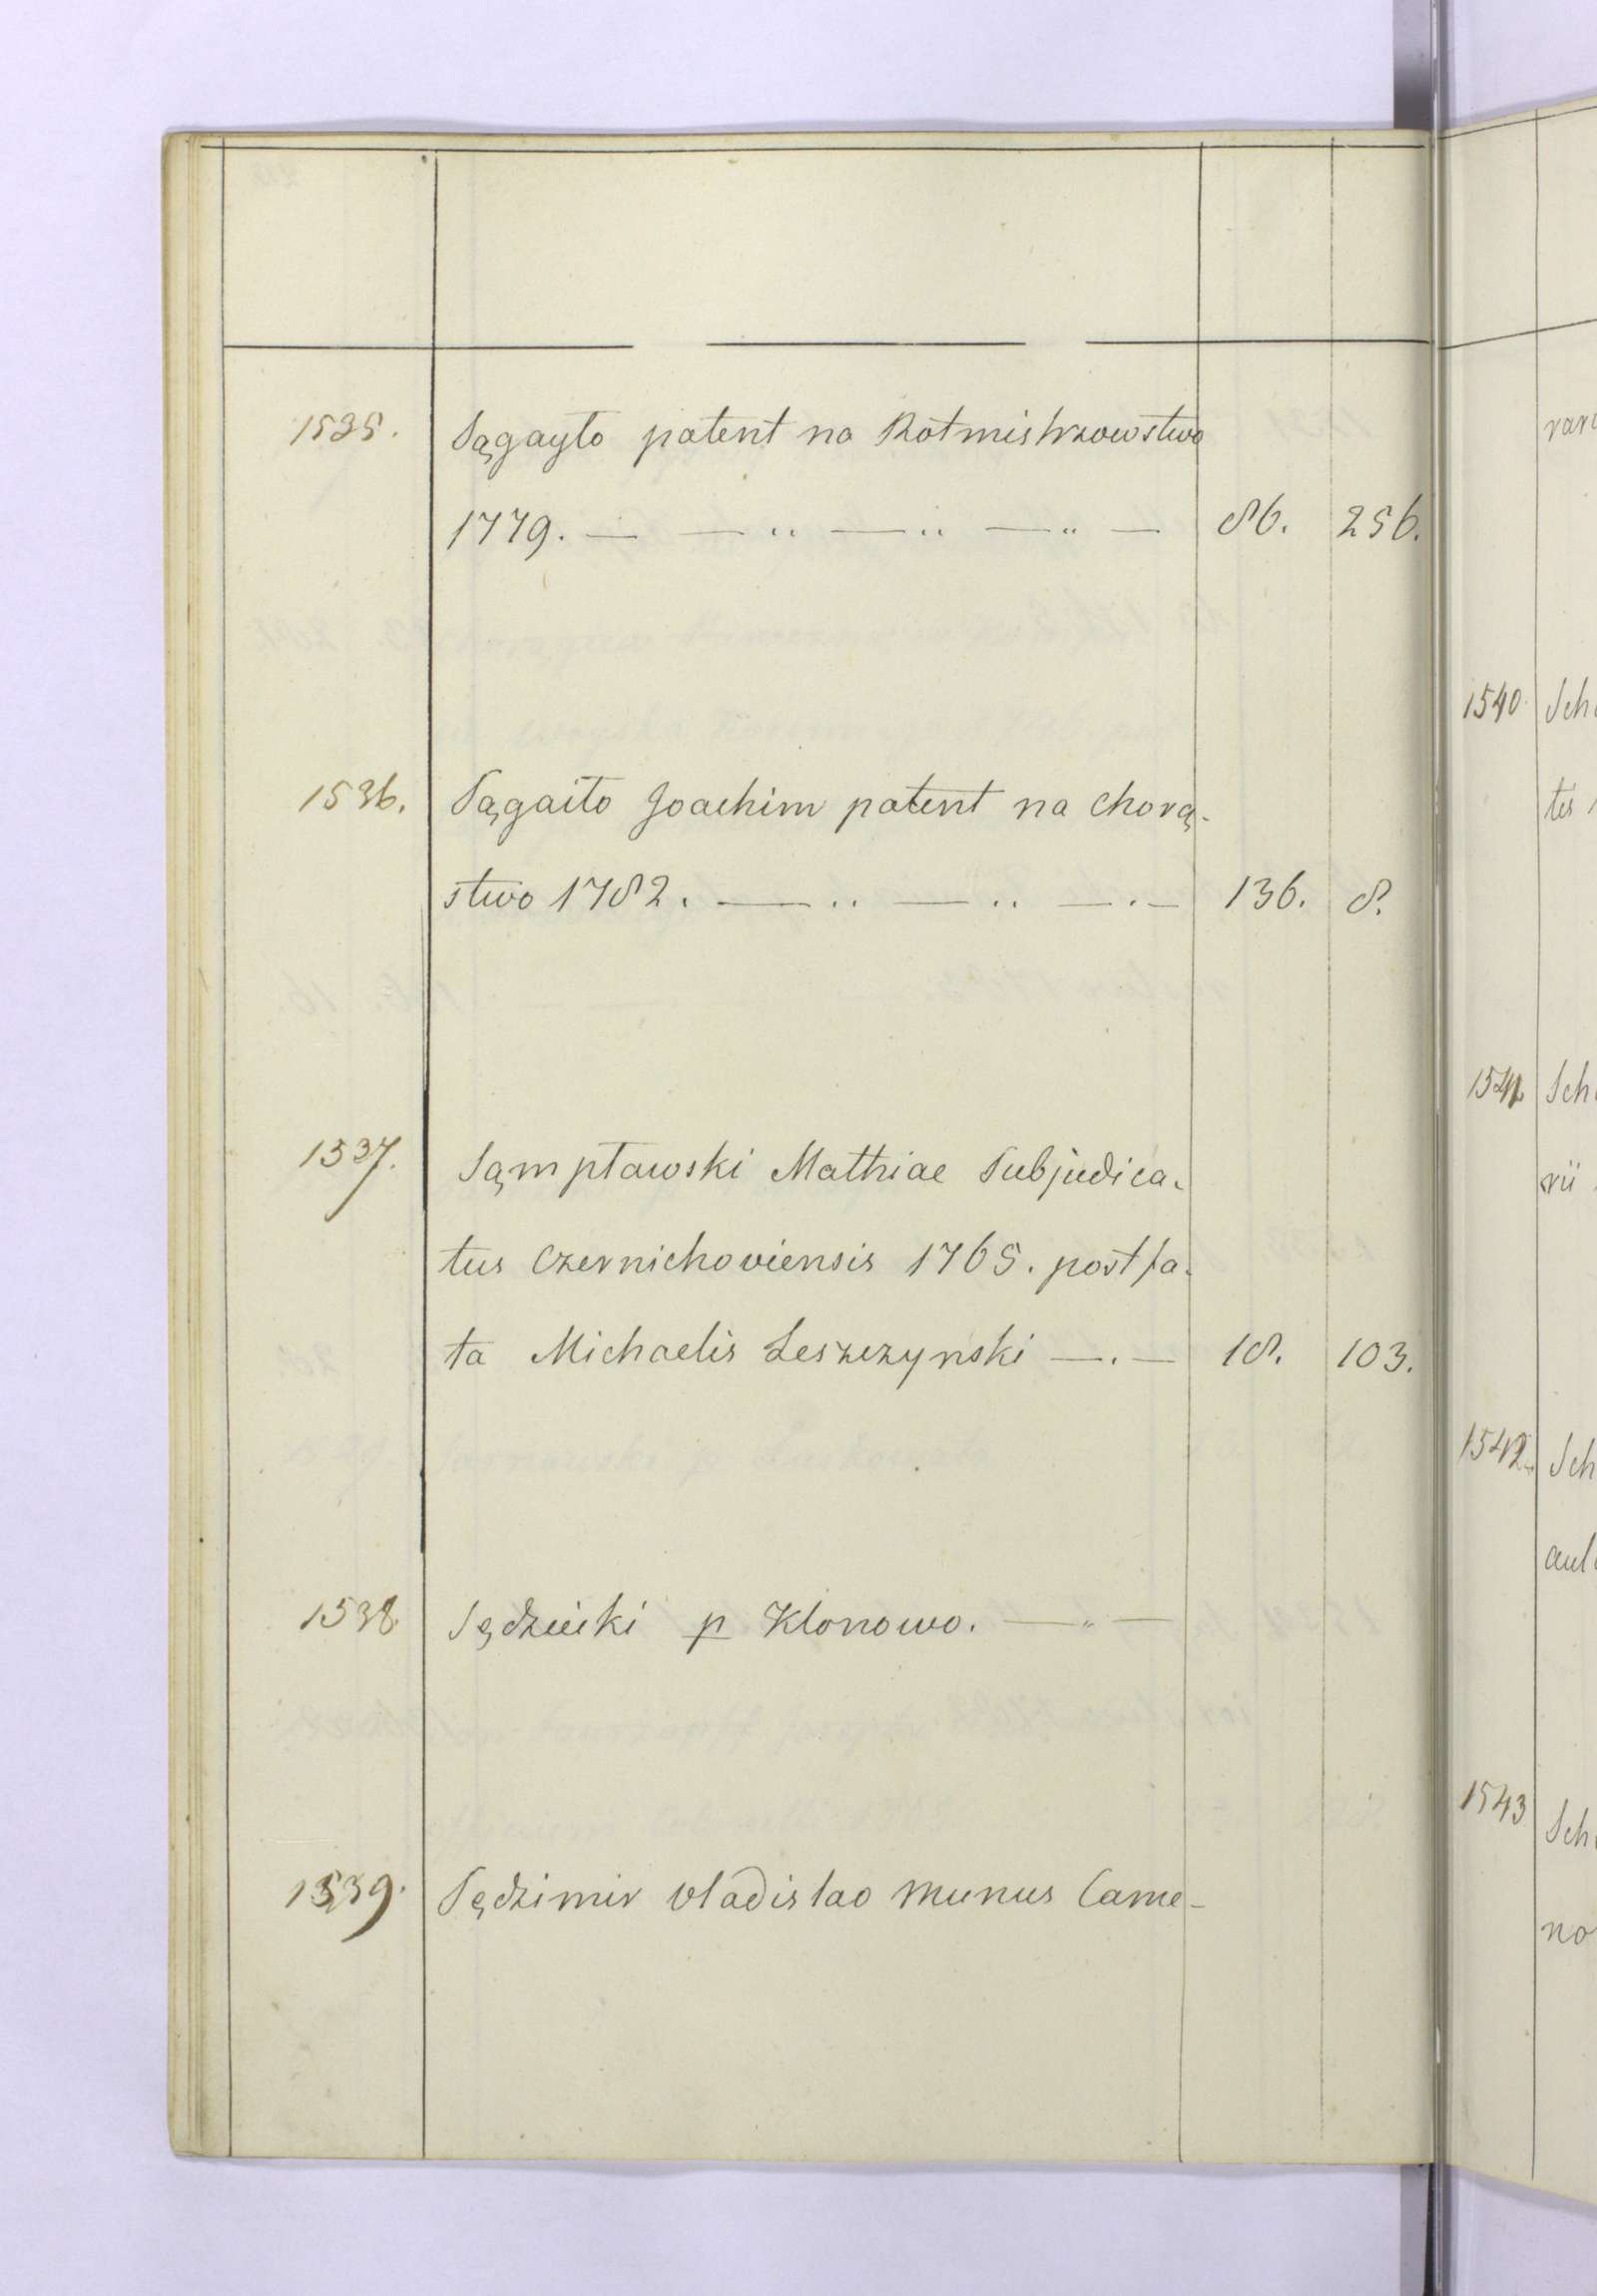 1535. Sągayło patent na Rotmistrzowstwo
1779. — — .. — .. — .. — 86. 256.
1536. Sągaiło Joachim patent na chorą-
stwo 1782. — .. — .. — . — 136. 8.
1537. Sąmpławski Mathiae Subjudica-
tus Czernichoviensis 1765. post fa-
ta Michaelis Leszczynski — . — 18. 103.
1538 Sędzicki p Klonowo. — .. —
1539. Sędzimir Vladislao munus Came-
1540. Sch
tes
1541. Sch
rii
1542. Sch
aul
1543 Sch
no